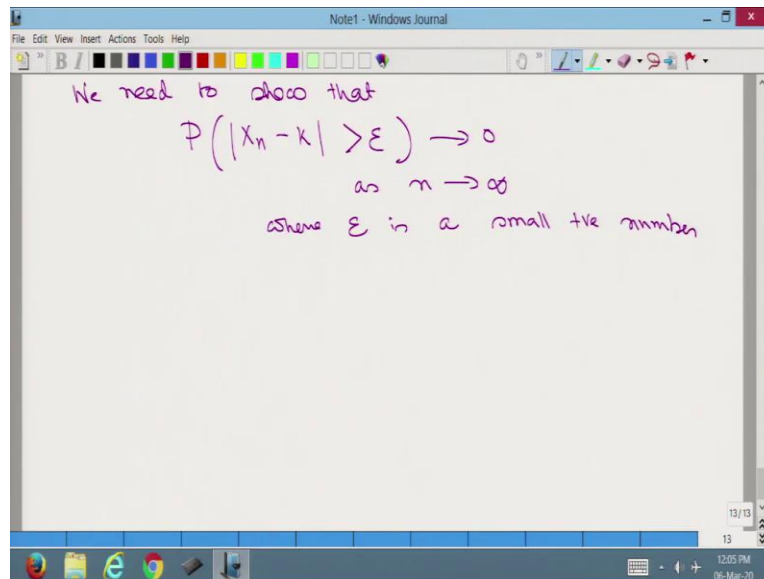 Note1 - Windows Journal
File Edit View Insert Actions Tools Help
B I
We need to show that
P(|Xn - K| > ε) → 0
as n → ∞
where ε is a small +ve number
13/13
13
12:05 PM
06-Mar-20